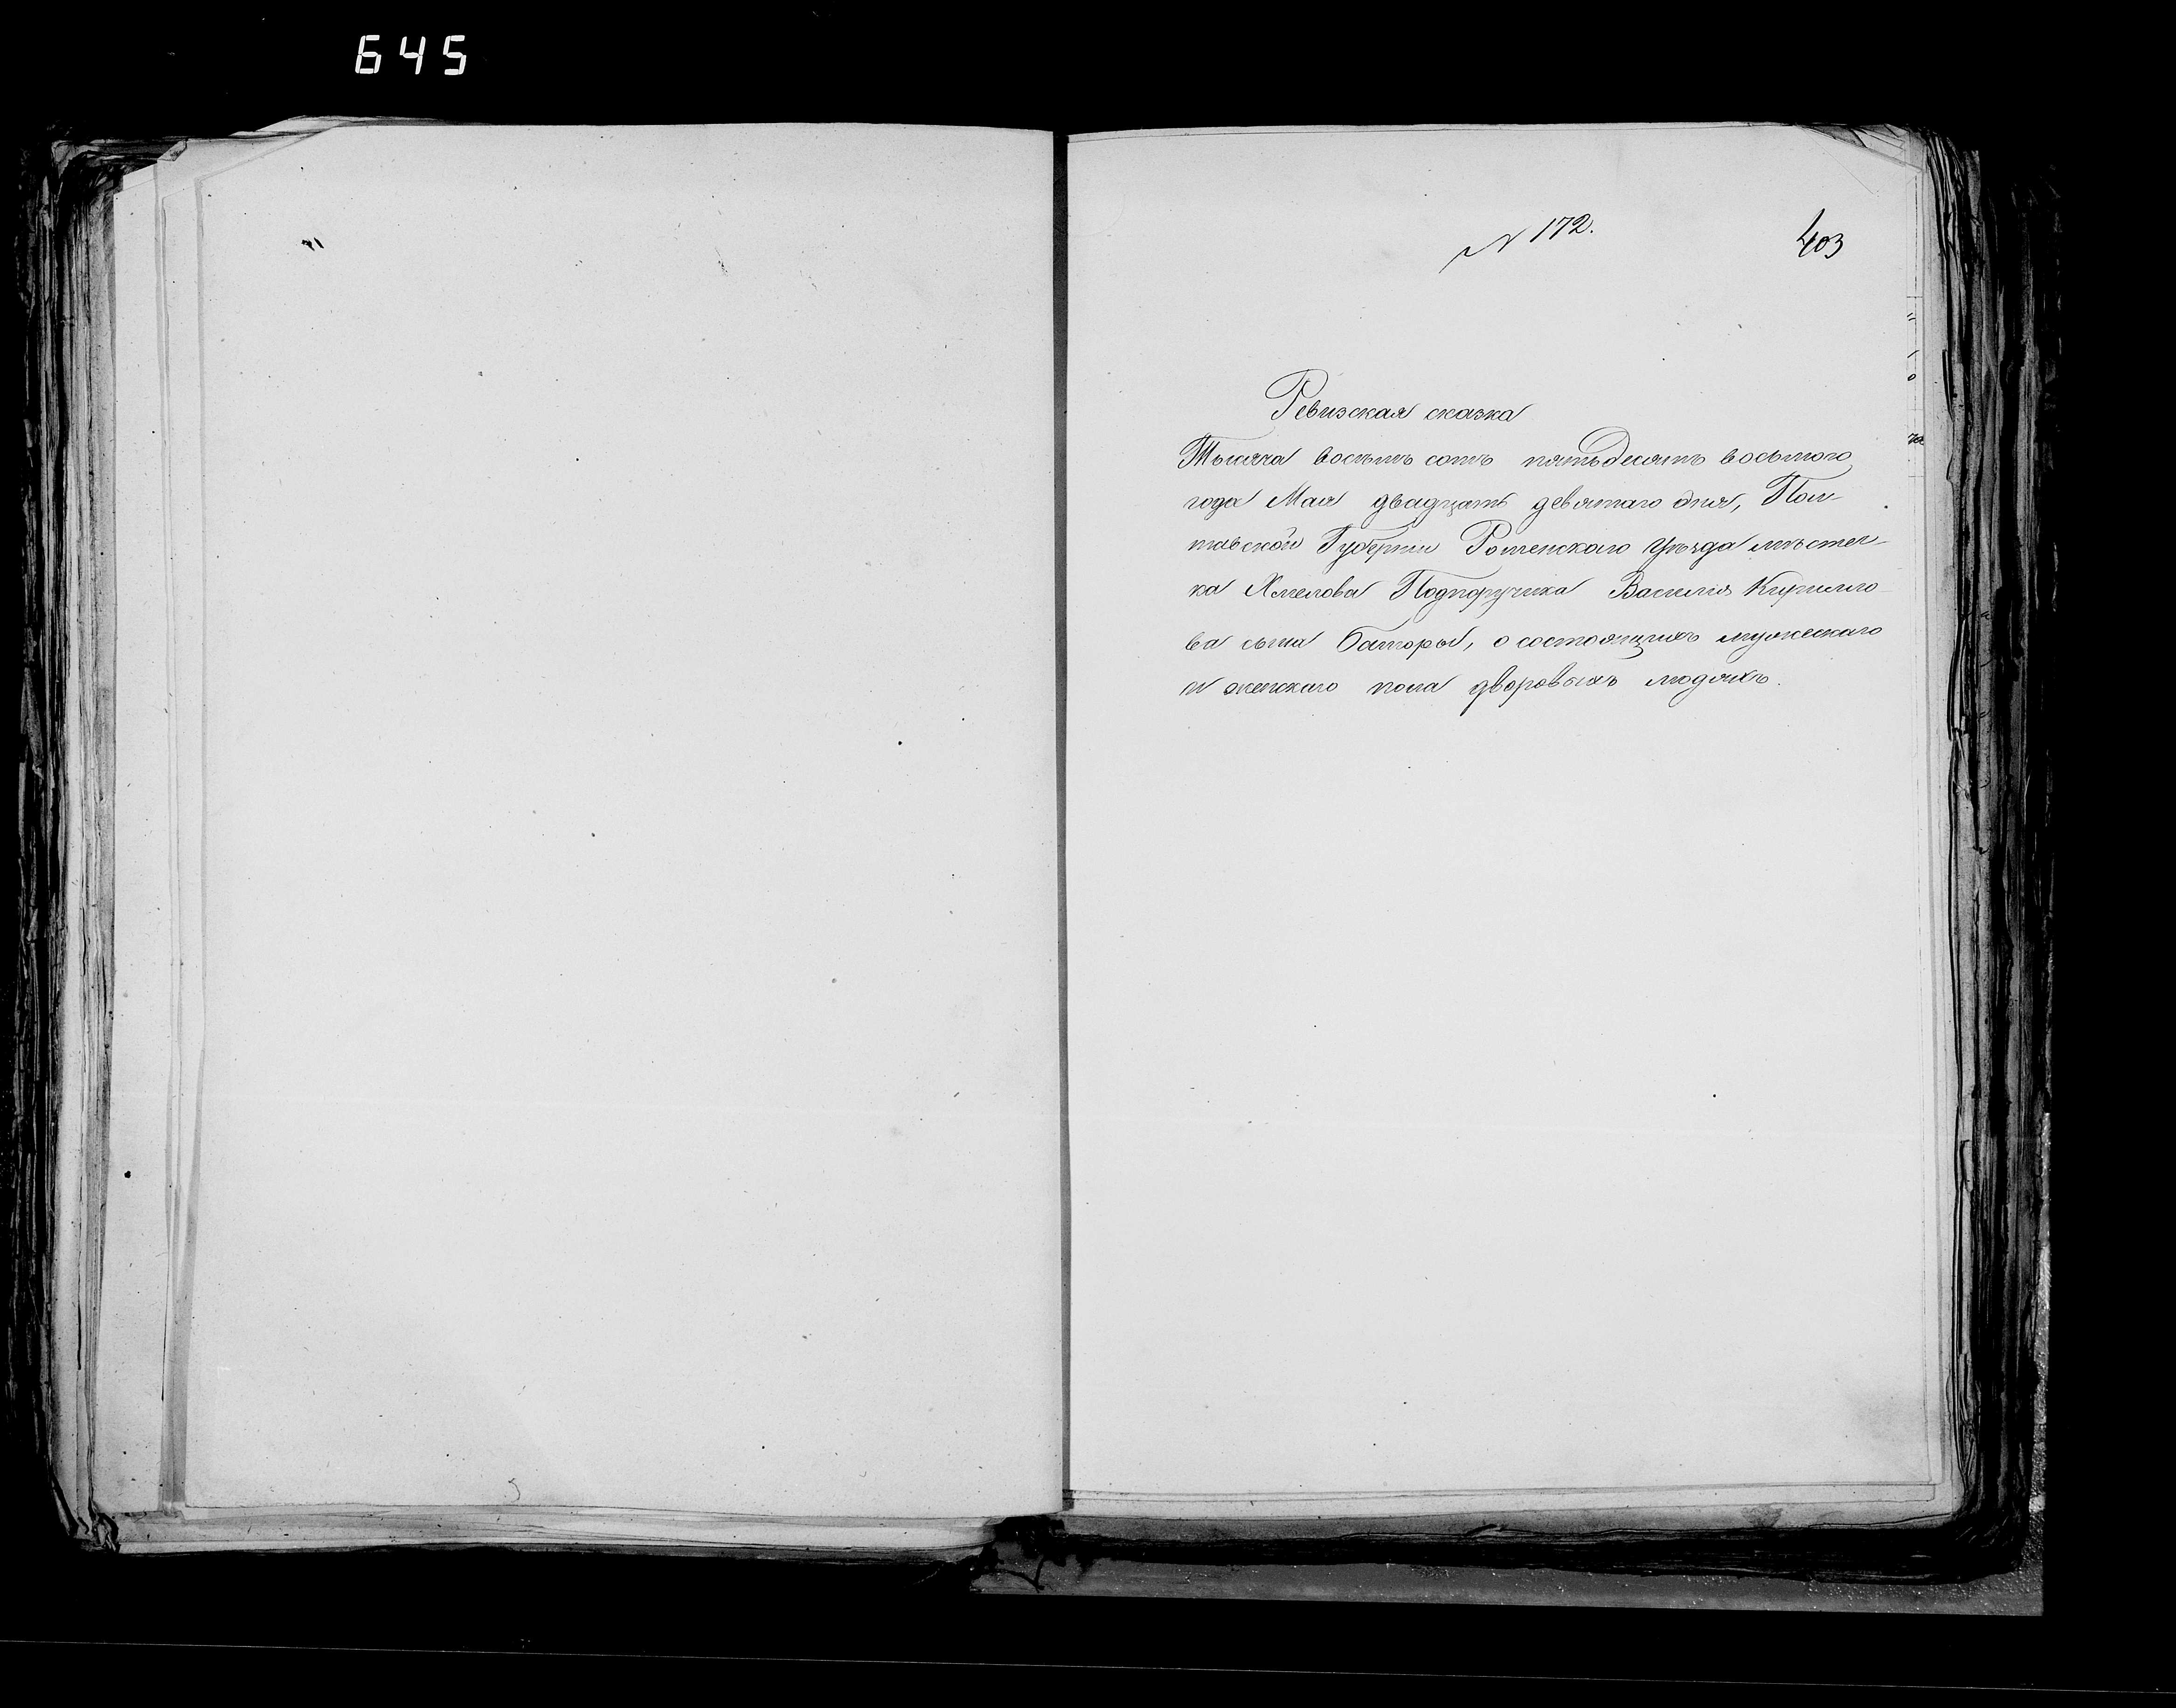 645
N 172.
403
Ревизская сказка
Тысяча восемь сотъ пятьдесятъ восьмого
года Мая двадцать девятаго дня, Пол-
тавской Губерніи Роменскаго Уѣзда мѣстеч-
ка Хмелова Подпоручика Василія Кирилло-
ва сына , о состоящихъ мужескаго
и женскаго пола дворовыхъ людяхъ.